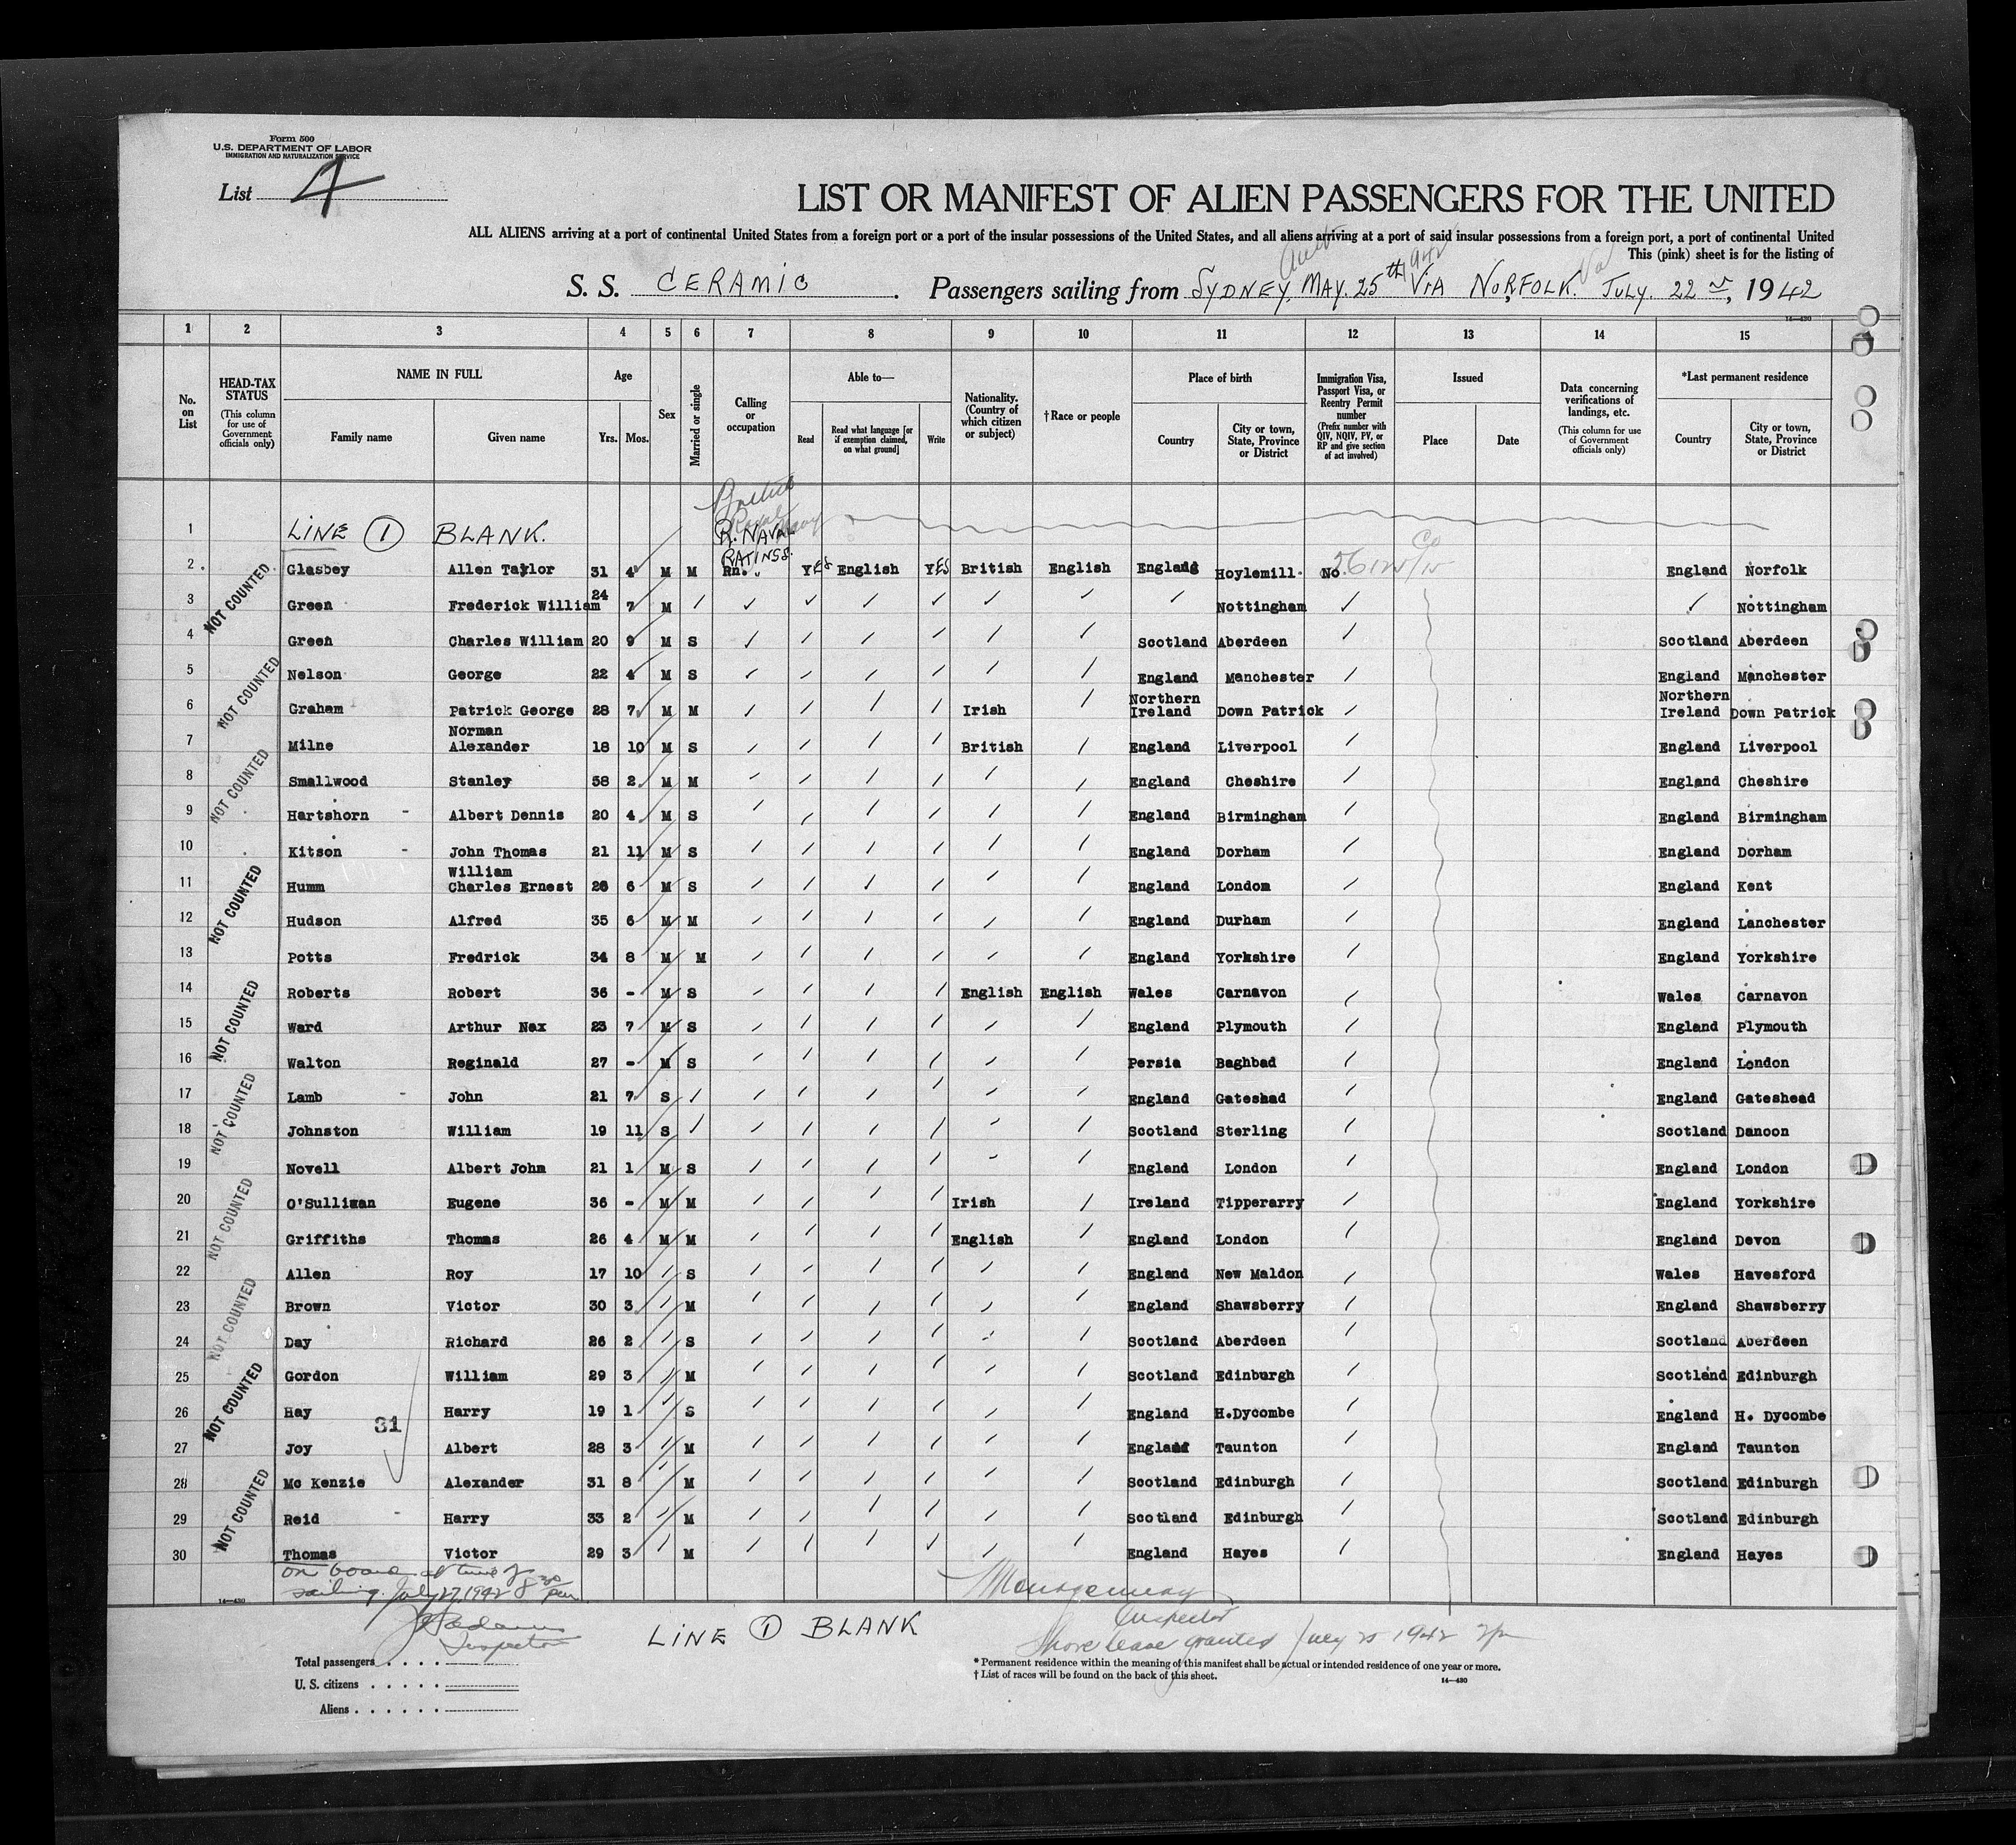 Form 500
U.S. DEPARTMENT OF LABOR
IMMIGRATION AND NATURALIZATION SERVICE
List 4
LIST OR MANIFEST OF ALIEN PASSENGERS FOR THE UNITED
ALL ALIENS arriving at a port of continental United States from a foreign port or a port of the insular possessions of the United States, and all aliens arriving at a port of said insular possessions from a foreign port, a port of continental United
This (pink) sheet is for the listing of
S. S. CERAMIC. Passengers sailing from SYDNEY, MAY. 25th VIA NORFOLK. JULY. 22, 1942
14—430
1 2 3 4 5 6 7 8 9 10 11 12 13 14 15
No. on List
HEAD-TAX STATUS
(This column for use of Government officials only)
NAME IN FULL
Family name Given name
Age
Yrs. Mos.
Sex
Married or single
Calling or occupation
Able to—
Read
Read what language [or if exemption claimed, on what ground]
Write
Nationality. (Country of which citizen or subject)
†Race or people
Place of birth
Country
City or town, State, Province or District
Immigration Visa, Passport Visa, or Reentry Permit number
(Prefix number with QIV, NQIV, PV, or RP and give section of act involved)
Issued
Place Date
Data concerning verifications of landings, etc.
(This column for use of Government officials only)
*Last permanent residence
Country
City or town, State, Province or District
1 LINE 1 BLANK. R. NAVAL RATINGS.
2 Glasbey Allen Taylor 31 4 M M Rn. YES English YES British English England Hoylemill No England Norfolk
3 Green Frederick William 24 7 M Nottingham Nottingham
4 Green Charles William 20 9 M S Scotland Aberdeen Scotland Aberdeen
5 Nelson George 22 4 M S England Manchester England Manchester
6 Graham Patrick George 28 7 M M Irish Northern Ireland Down Patrick Northern Ireland Down Patrick
7 Milne Norman Alexander 18 10 M S British England Liverpool England Liverpool
8 Smallwood Stanley 58 2 M M England Cheshire England Cheshire
9 Hartshorn - Albert Dennis 20 4 M S England Birmingham England Birmingham
10 Kitson - John Thomas 21 11 M S England Dorham England Dorham
11 Humm William Charles Ernest 26 6 M S England London England Kent
12 Hudson Alfred 35 6 M M England Durham England Lanchester
13 Potts Fredrick 34 8 M M England Yorkshire England Yorkshire
14 Roberts Robert 36 - M S English English Wales Carnavon Wales Carnavon
15 Ward Arthur Nax 23 7 M S England Plymouth England Plymouth
16 Walton Reginald 27 - M S Persia Baghbad England London
17 Lamb - John 21 7 S England Gateshad England Gateshead
18 Johnston William 19 11 S Scotland Sterling Scotland Danoon
19 Novell Albert John 21 1 M S England London England London
20 O'Sullivan Eugene 36 - M M Irish Ireland Tipperarry England Yorkshire
21 Griffiths Thomas 26 4 M M English England London England Devon
22 Allen Roy 17 10 S England New Maldon Wales Havesford
23 Brown Victor 30 3 M England Shawsberry England Shawsberry
24 Day Richard 26 2 S Scotland Aberdeen Scotland Aberdeen
25 Gordon William 29 3 M Scotland Edinburgh Scotland Edinburgh
26 Hay Harry 19 1 S England H.Dycombe England H. Dycombe
31
27 Joy Albert 28 3 M England Taunton England Taunton
28 Mc Kenzie Alexander 31 8 M Scotland Edinburgh Scotland Edinburgh
29 Reid - Harry 33 2 M Scotland Edinburgh Scotland Edinburgh
30 Thomas Victor 29 3 M England Hayes England Hayes
NOT COUNTED
NOT COUNTED
NOT COUNTED
NOT COUNTED
NOT COUNTED
NOT COUNTED
NOT COUNTED
NOT COUNTED
NOT COUNTED
NOT COUNTED
on board at time of
sailing. July 27, 1942 8 30 pm
14—430
Inspector
LINE 1 BLANK
Inspector
Shore leave granted July 25 1942
Total passengers
U. S. citizens
Aliens
* Permanent residence within the meaning of this manifest shall be actual or intended residence of one year or more.
† List of races will be found on the back of this sheet.
14—430